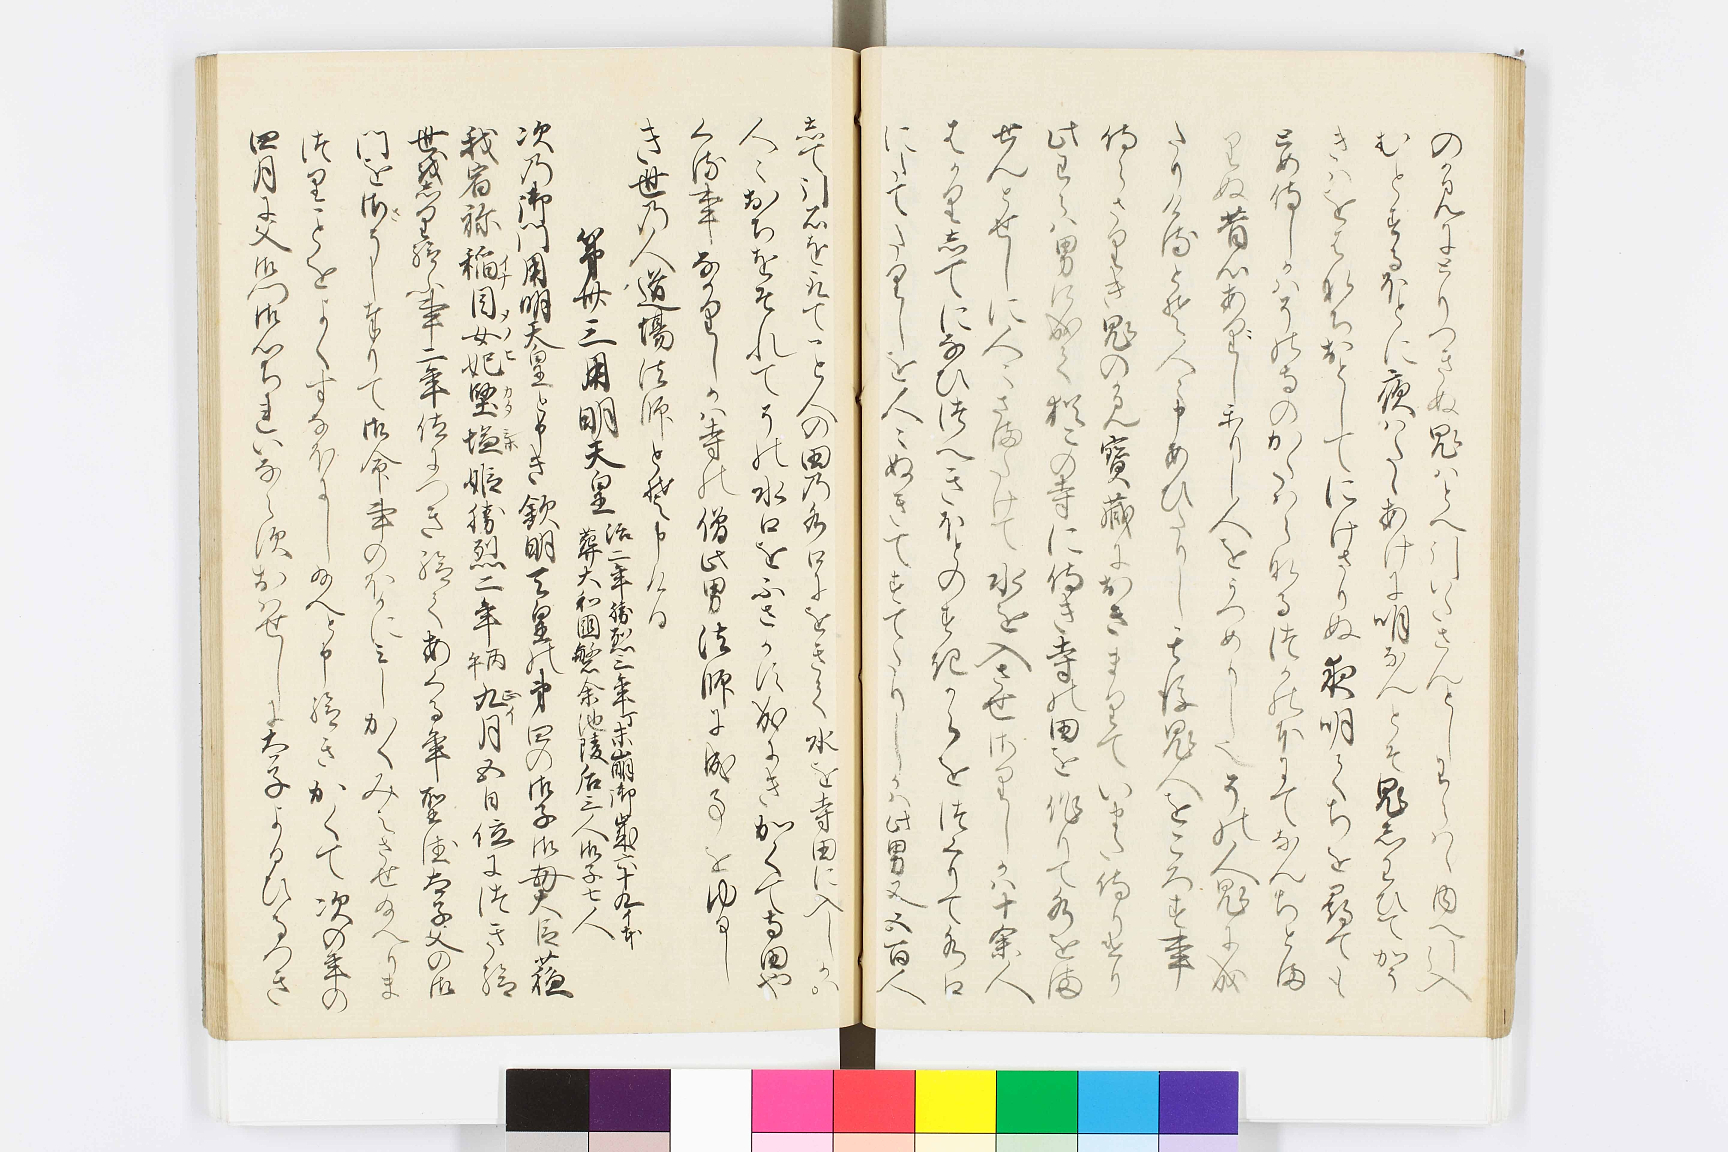 の鬼にとりつきぬ鬼はとへ引いてさんとしわらはゝ内へ引入
むとするほとに夜はたゝあけに明なんとす鬼志わひてかう
きはをはなちおとしてにけさりぬ夜明てちを尋ても
とめ侍しかはその寺のかたはらなるつかのもとにてなんちとま
りぬ昔心あしかりし人をうつめりし也その人鬼に成
たりけるとそ人々申あひたりし其後鬼人をころす事
侍らさりき鬼のかみ寶藏におきまりていまた侍めり
此わらは男になりて猶この寺に侍き寺の田を作りて水をま
せんとせしに人々さまたけて水を入させさりしかは十余人
はかりしてになひつへきほとのすきからをつくりて水口
にたてたりしを人々ぬきてすてたりしかは此男又五百人
志て引石をとりてこと人の田の水口にをきて水を寺田に入しかは
人々おちをそれてその水口をふさかすなりにきかくて寺田や
くる事なかりしかは寺の僧此男法師に成事をゆるし
き世の人道場法師とそ申ける
第卅三用明天皇 治二年勝烈三年丁未崩御歳六十九才或
葬大和國磐余池陵后三人御子七人
次の御門用明天皇と申き欽明天皇の第四の御子御母大臣蘇
我宿祢稲目女妃堅塩姫勝烈二年丙午九月五日位につき給
世を志り給事二年位につき給てあくる年聖徳太子父の御
門を御さうし奉りて御命事のほかにみしかくみえさせ給へりま
つりことをよくすなほにし給へと申給きかくて次の年の
四月に父御門御心ちれいならすおはせしに太子よるひるつき